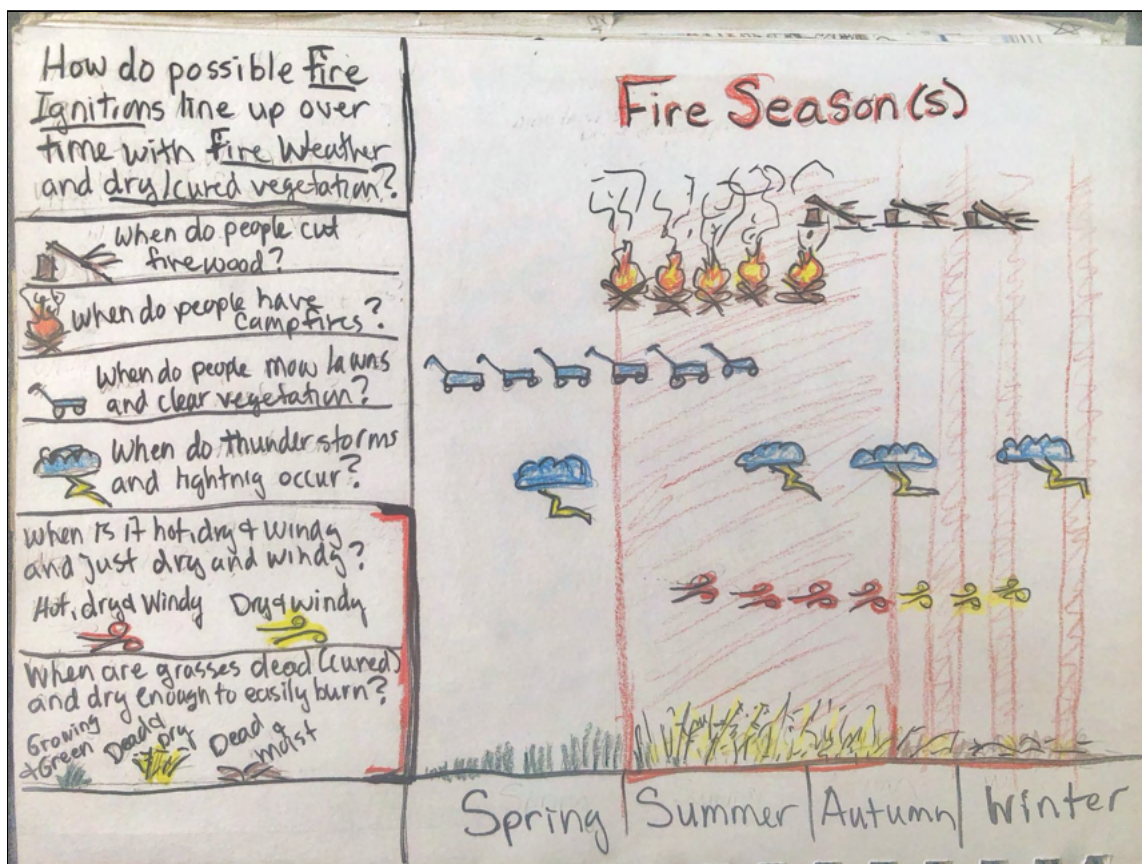 How do possible Fire
Ignitions line up over
time with Fire Weather
and dry/cured vegetation?
When do people cut
firewood?
When do people have
campfires?
When do people mow lawns
and clear vegetation?
When do thunderstorms
and lightnig occur?
When is it hot, dry & windy
and just dry and windy?
Hot, dry & Windy
Dry & windy
When are grasses dead (cured)
and dry enough to easily burn?
Growing
& Green
Dead &
Dry
Dead &
moist
Fire Season(s)
Spring
Summer
Autumn
Winter